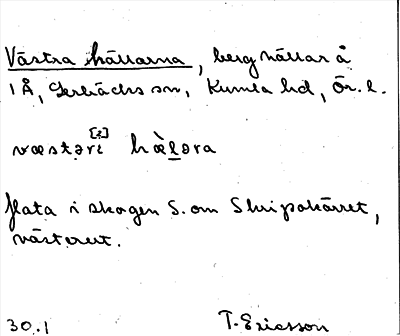 Västra hällarna, berghällar å
1 Å, Lerbäcks sn, Kumla hd, Ör. l.
væstəri [ɛ] hæ̀ləra
flata i skogen S. om Slripakärret,
västerut.
30.1 T. Ericsson